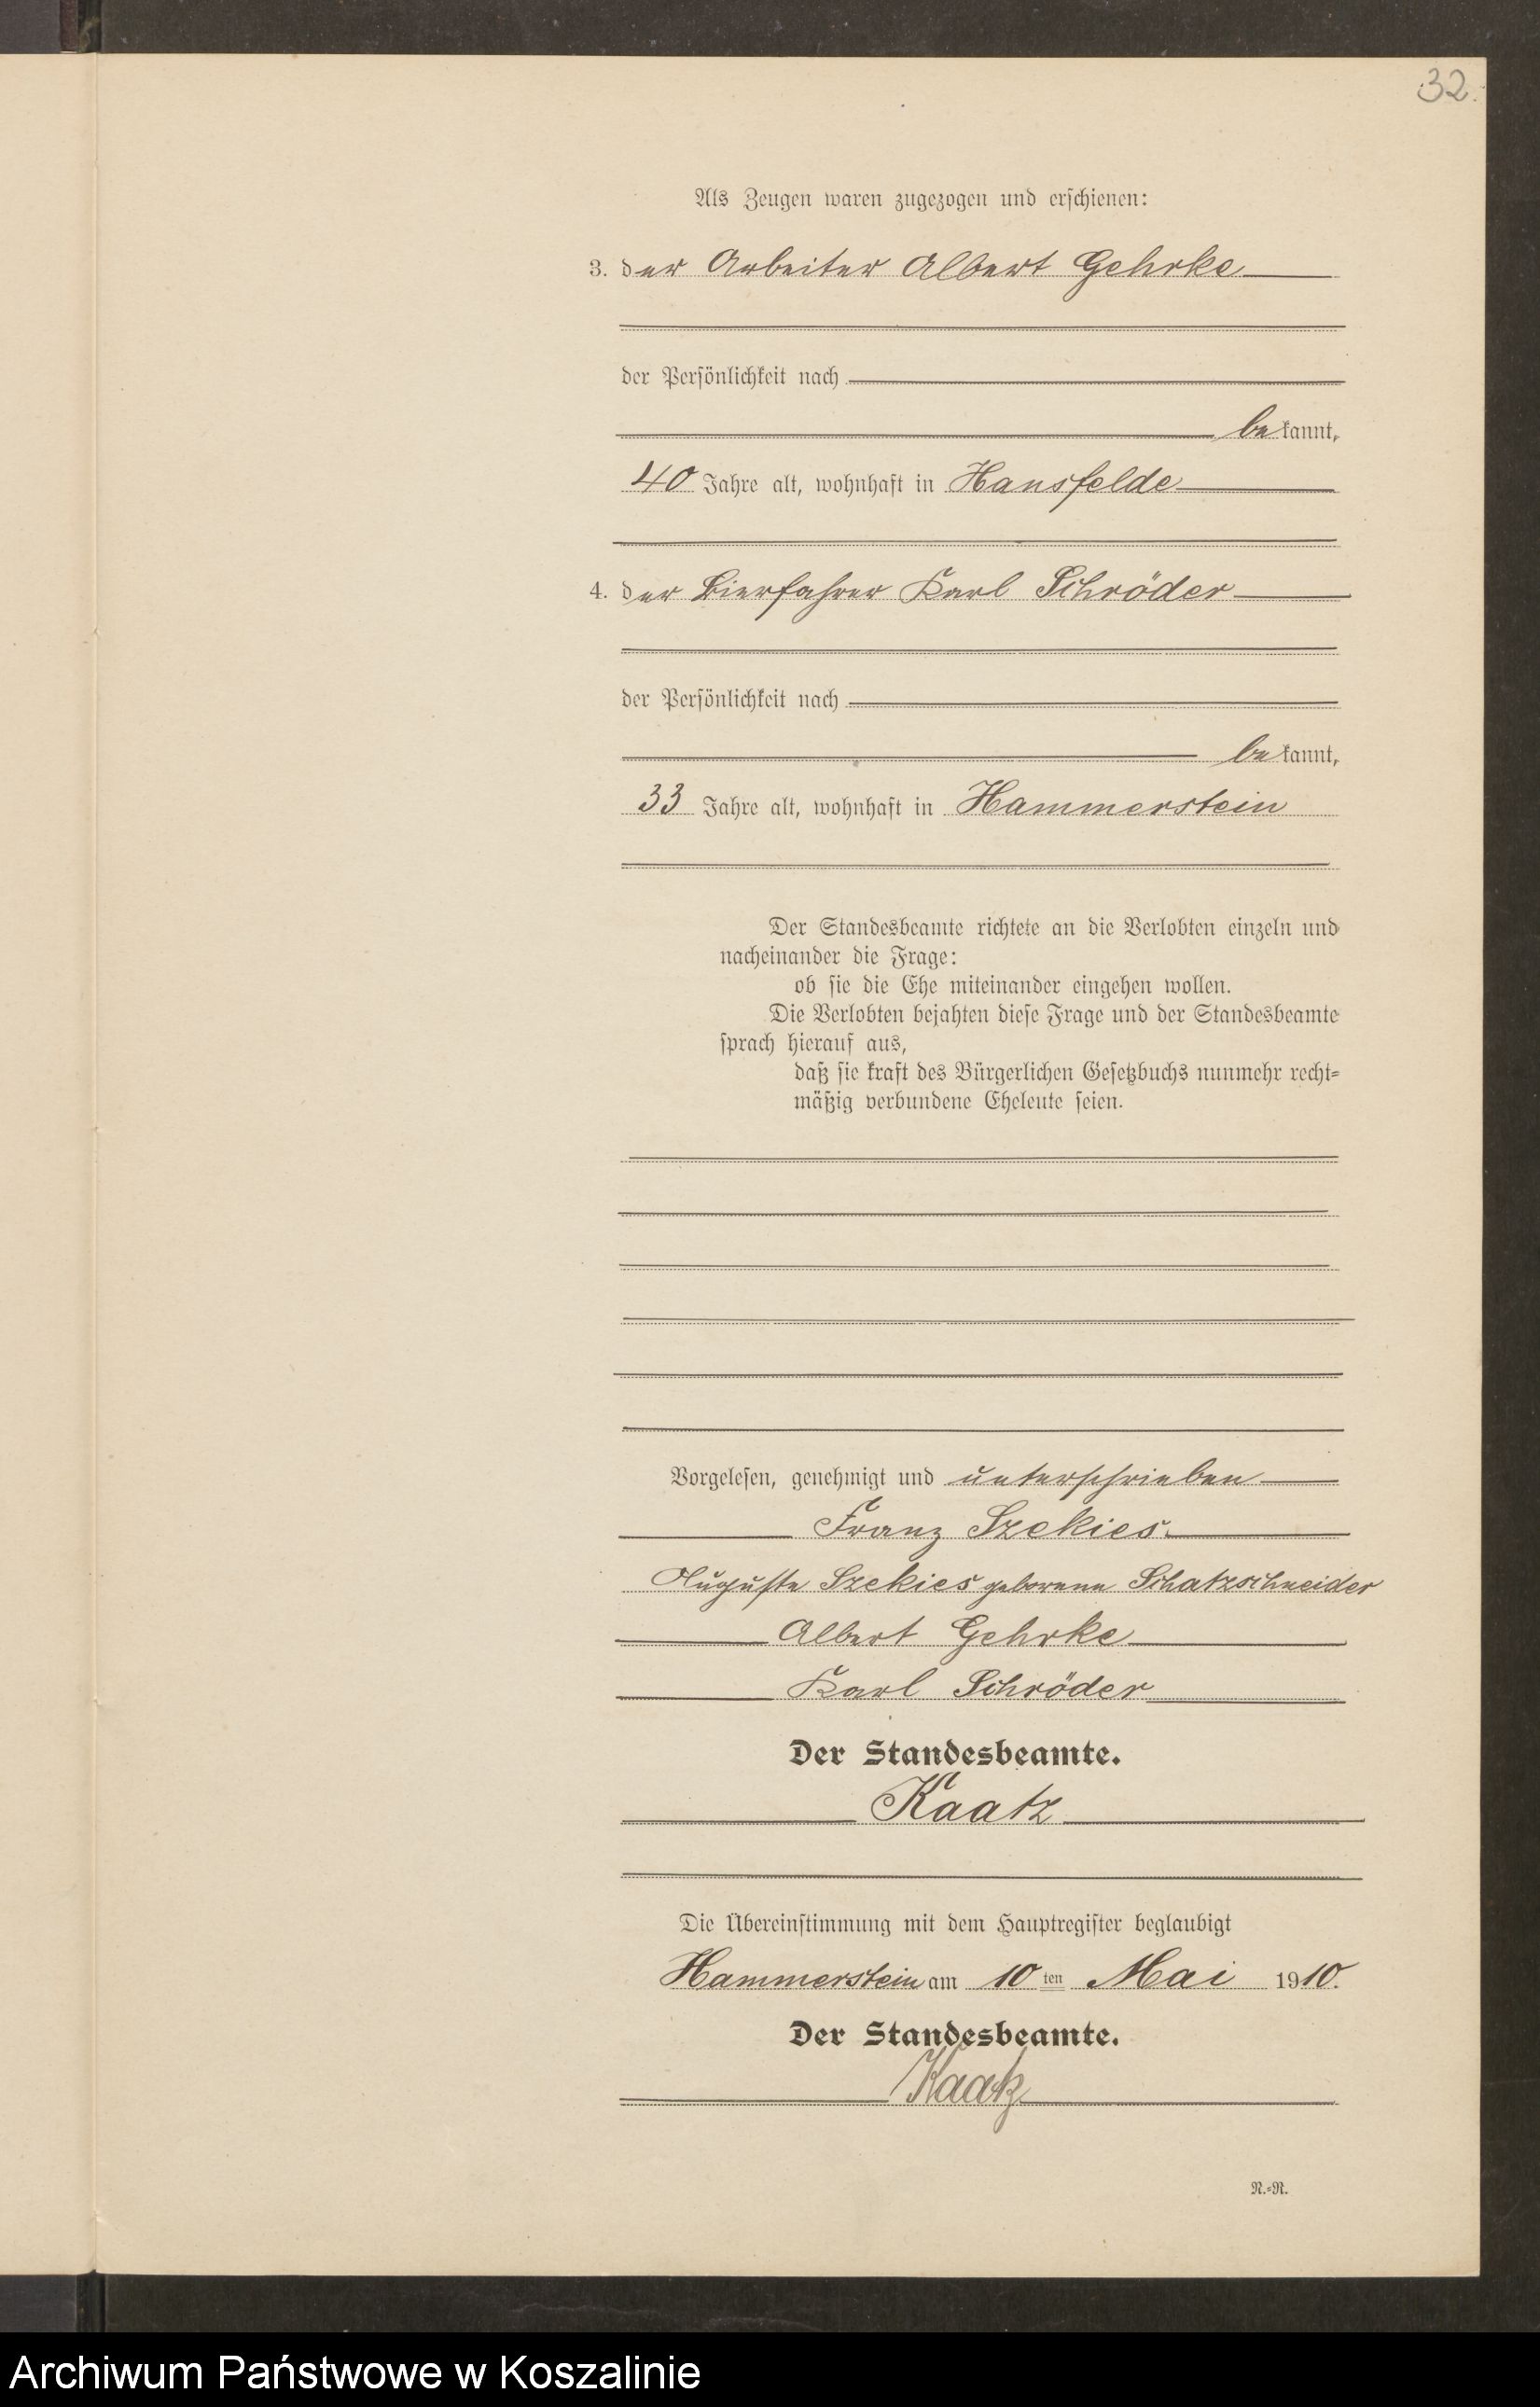 32.
Als Zeugen waren zugezogen und erschienen:
3. der Arbeiter Albert Gehrke
der Persönlichkeit nach
bekannt,
40 Jahre alt, wohnhaft in Hansfelde
4. der Bierfahrer Karl Schröder
der Persönlichkeit nach
bekannt,
33 Jahre alt, wohnhaft in Hammerstein
Der Standesbeamte richtete an die Verlobten einzeln und
nacheinander die Frage:
ob sie die Ehe miteinander eingehen wollen.
Die Verlobten bejahten diese Frage und der Standesbeamte
sprach hierauf aus,
daß sie kraft des Bürgerlichen Gesetzbuchs nunmehr recht=
mäßig verbundene Eheleute seien.
Vorgelesen, genehmigt und unterschrieben
Franz Szekies.
Auguste Szekies geborene Schatzschneider
Albert Gehrke
Karl Schröder
Der Standesbeamte.
Kaatz
Die Übereinstimmung mit dem Hauptregister beglaubigt
Hammerstein am 10ten Mai 1910.
Der Standesbeamte.
Kaatz
R.=R.
Archiwum Państwowe w Koszalinie